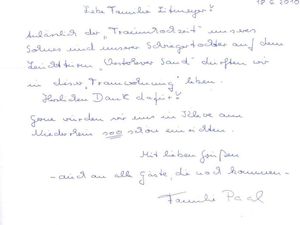 18.6.2010
Liebe Familie
Anlässlich der „Traumhochzeit" unseres
Sohnes und unserer Schwiegertochter auf dem
Leuchtturm „ Sand" durften wir
in dieser „Traumwohnung" leben.
Herzlichen Dank dafür!
Gerne würden wir uns in Kleve am
Niederrhein soo schön einrichten.
Mit lieben Grüßen
- auch an alle Gäste, die noch kommen -
Familie